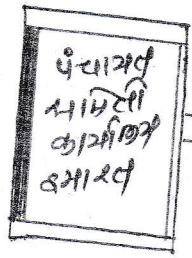 पंचायत
सामिती
कार्यालय
इमारत